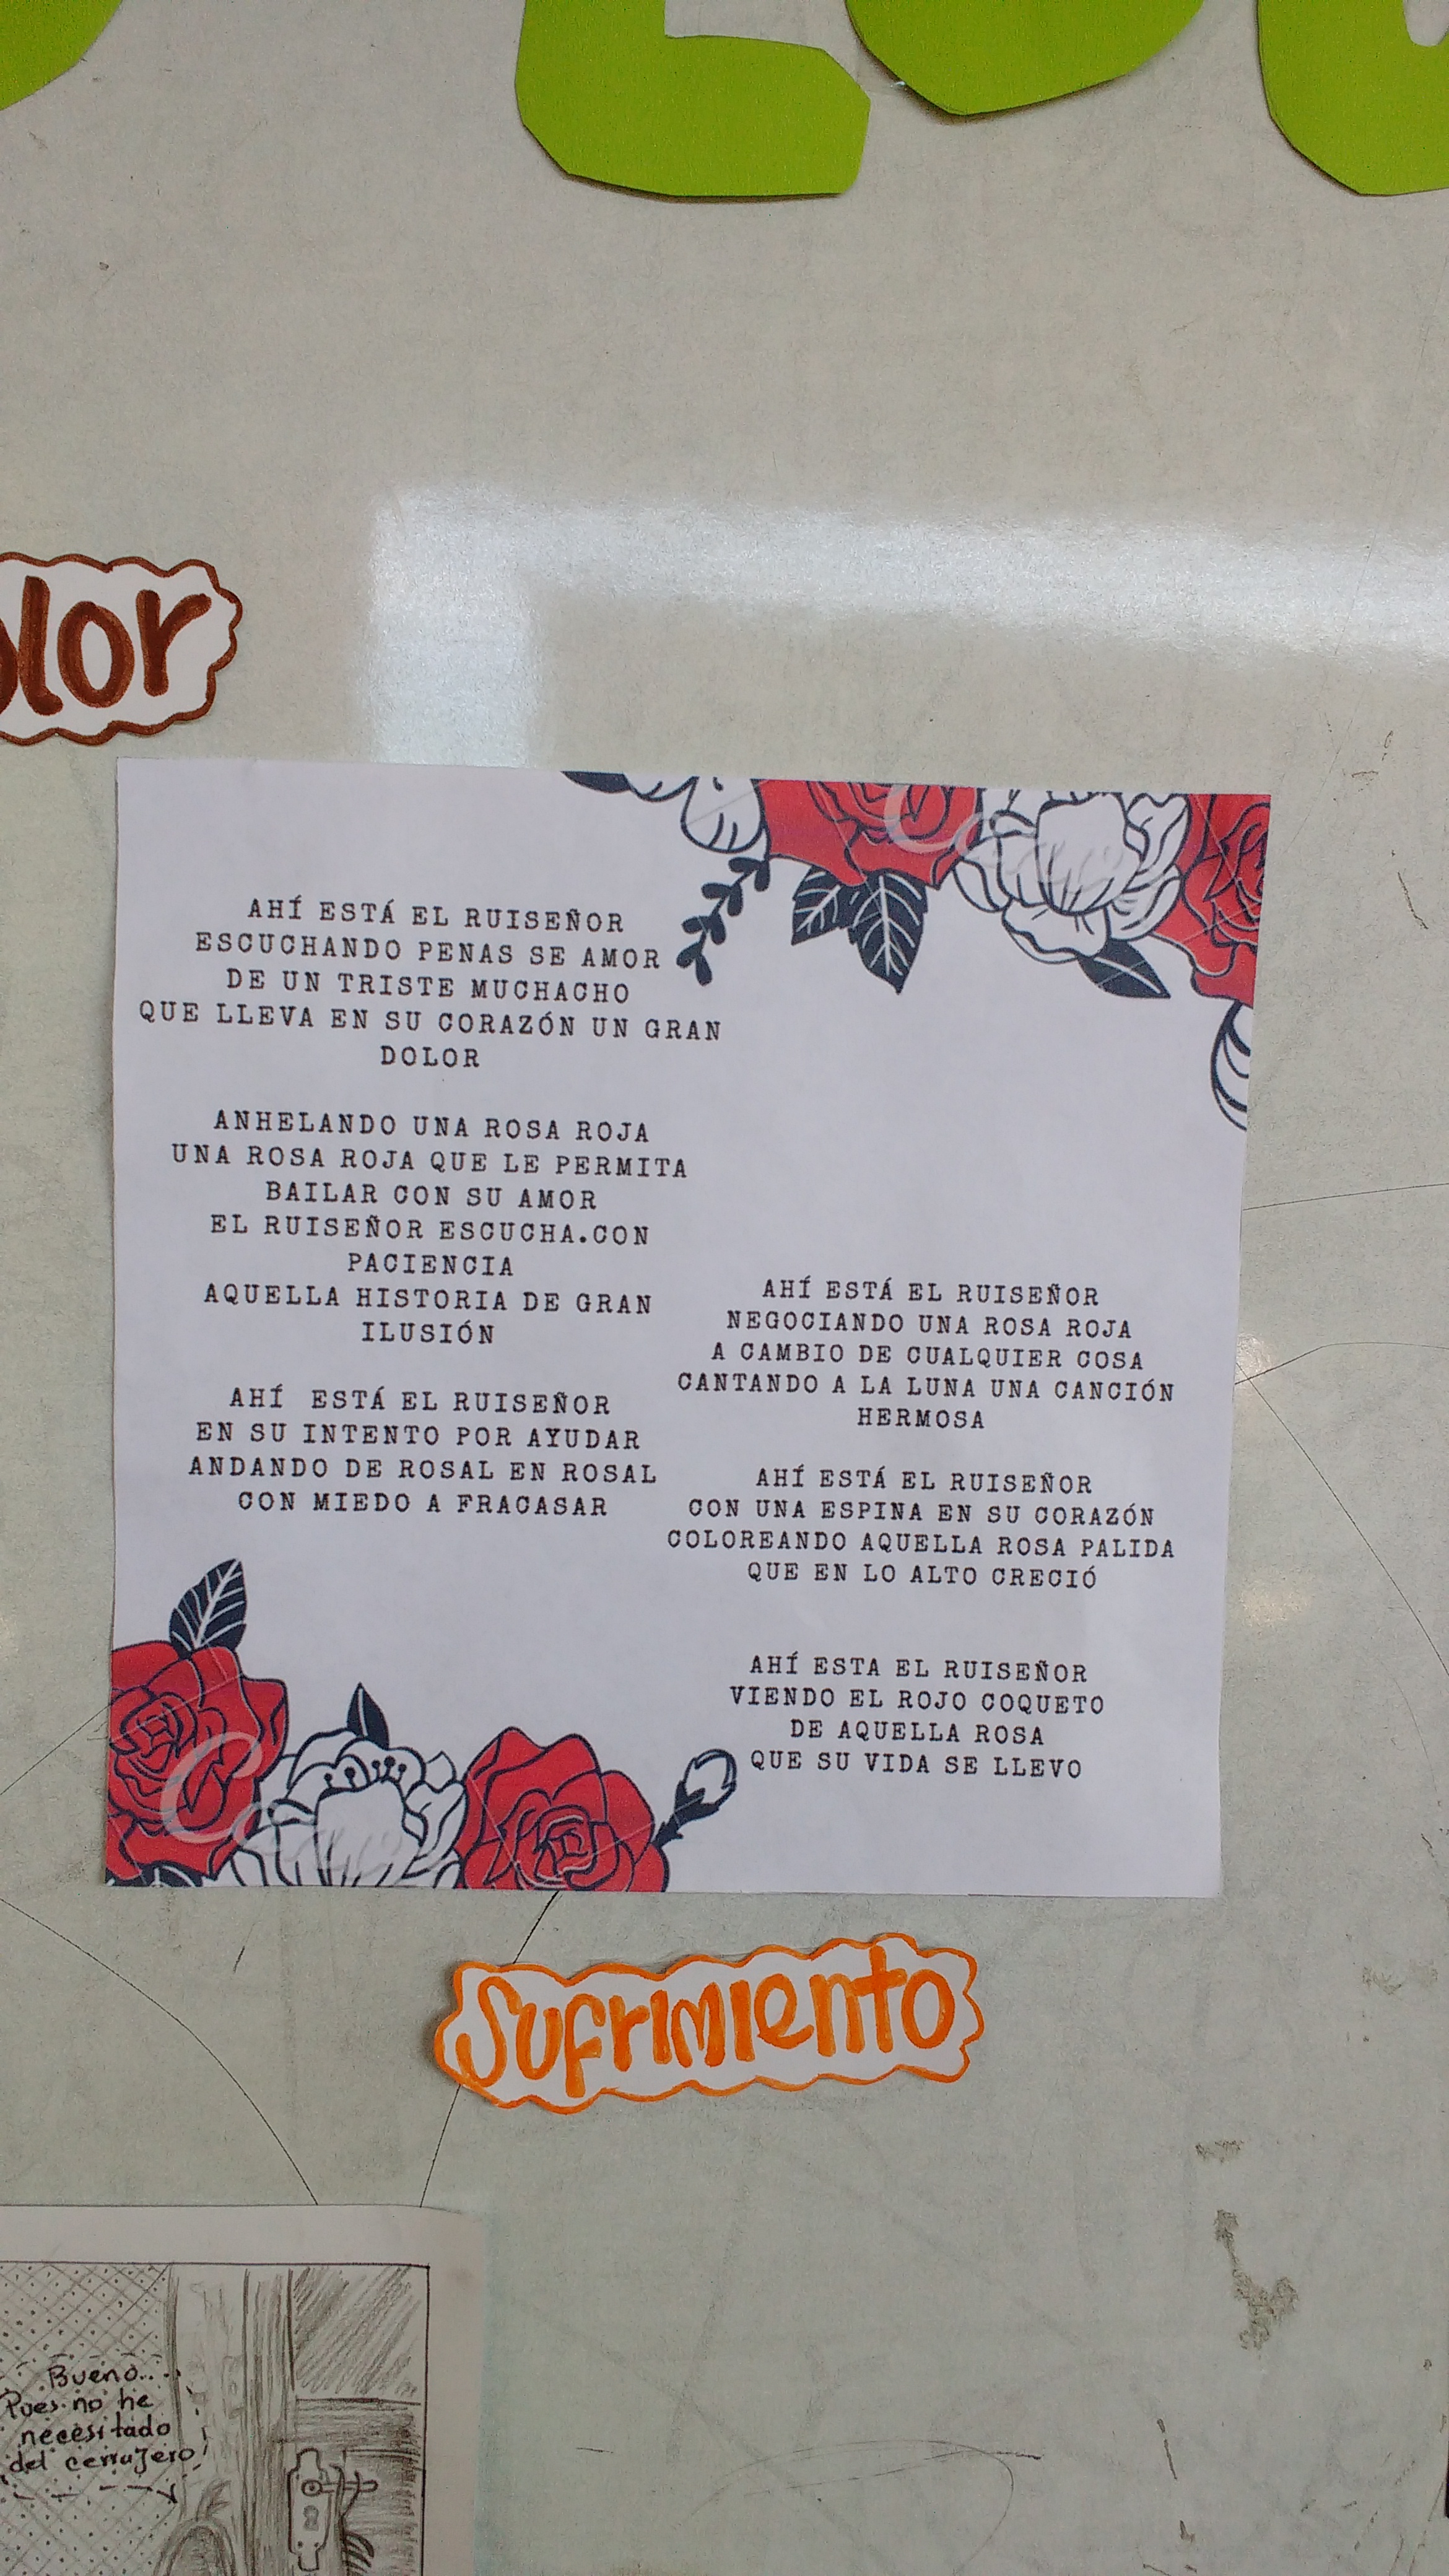 AHÍ ESTÁ EL RUISEÑOR
ESCUCHANDO PENAS SE AMOR
DE UN TRISTE MUCHACHO
QUE LLEVA EN SU CORAZÓN UN GRAN
DOLOR
ANHELANDO UNA ROSA ROJA
UNA ROSA ROJA QUE LE PERMITA
BAILAR CON SU AMOR
EL RUISEÑOR ESCUCHA.CON
PACIENCIA
AQUELLA HISTORIA DE GRAN
ILUSIÓN
AHÍ ESTÁ EL RUISEÑOR
EN SU INTENTO POR AYUDAR
ANDANDO DE ROSAL EN ROSAL
CON MIEDO A FRACASAR
AHÍ ESTÁ EL RUISEÑOR
NEGOCIANDO UNA ROSA ROJA
A CAMBIO DE CUALQUIER COSA
CANTANDO A LA LUNA UNA CANCIÓN
HERMOSA
AHÍ ESTÁ EL RUISEÑOR
CON UNA ESPINA EN SU CORAZÓN
COLOREANDO AQUELLA ROSA PALIDA
QUE EN LO ALTO CRECIÓ
AHÍ ESTA EL RUISEÑOR
VIENDO EL ROJO COQUETO
DE AQUELLA ROSA
QUE SU VIDA SE LLEVO
Sufrimiento
Bueno....
Pues no he
necesitado
del cerrajero
2